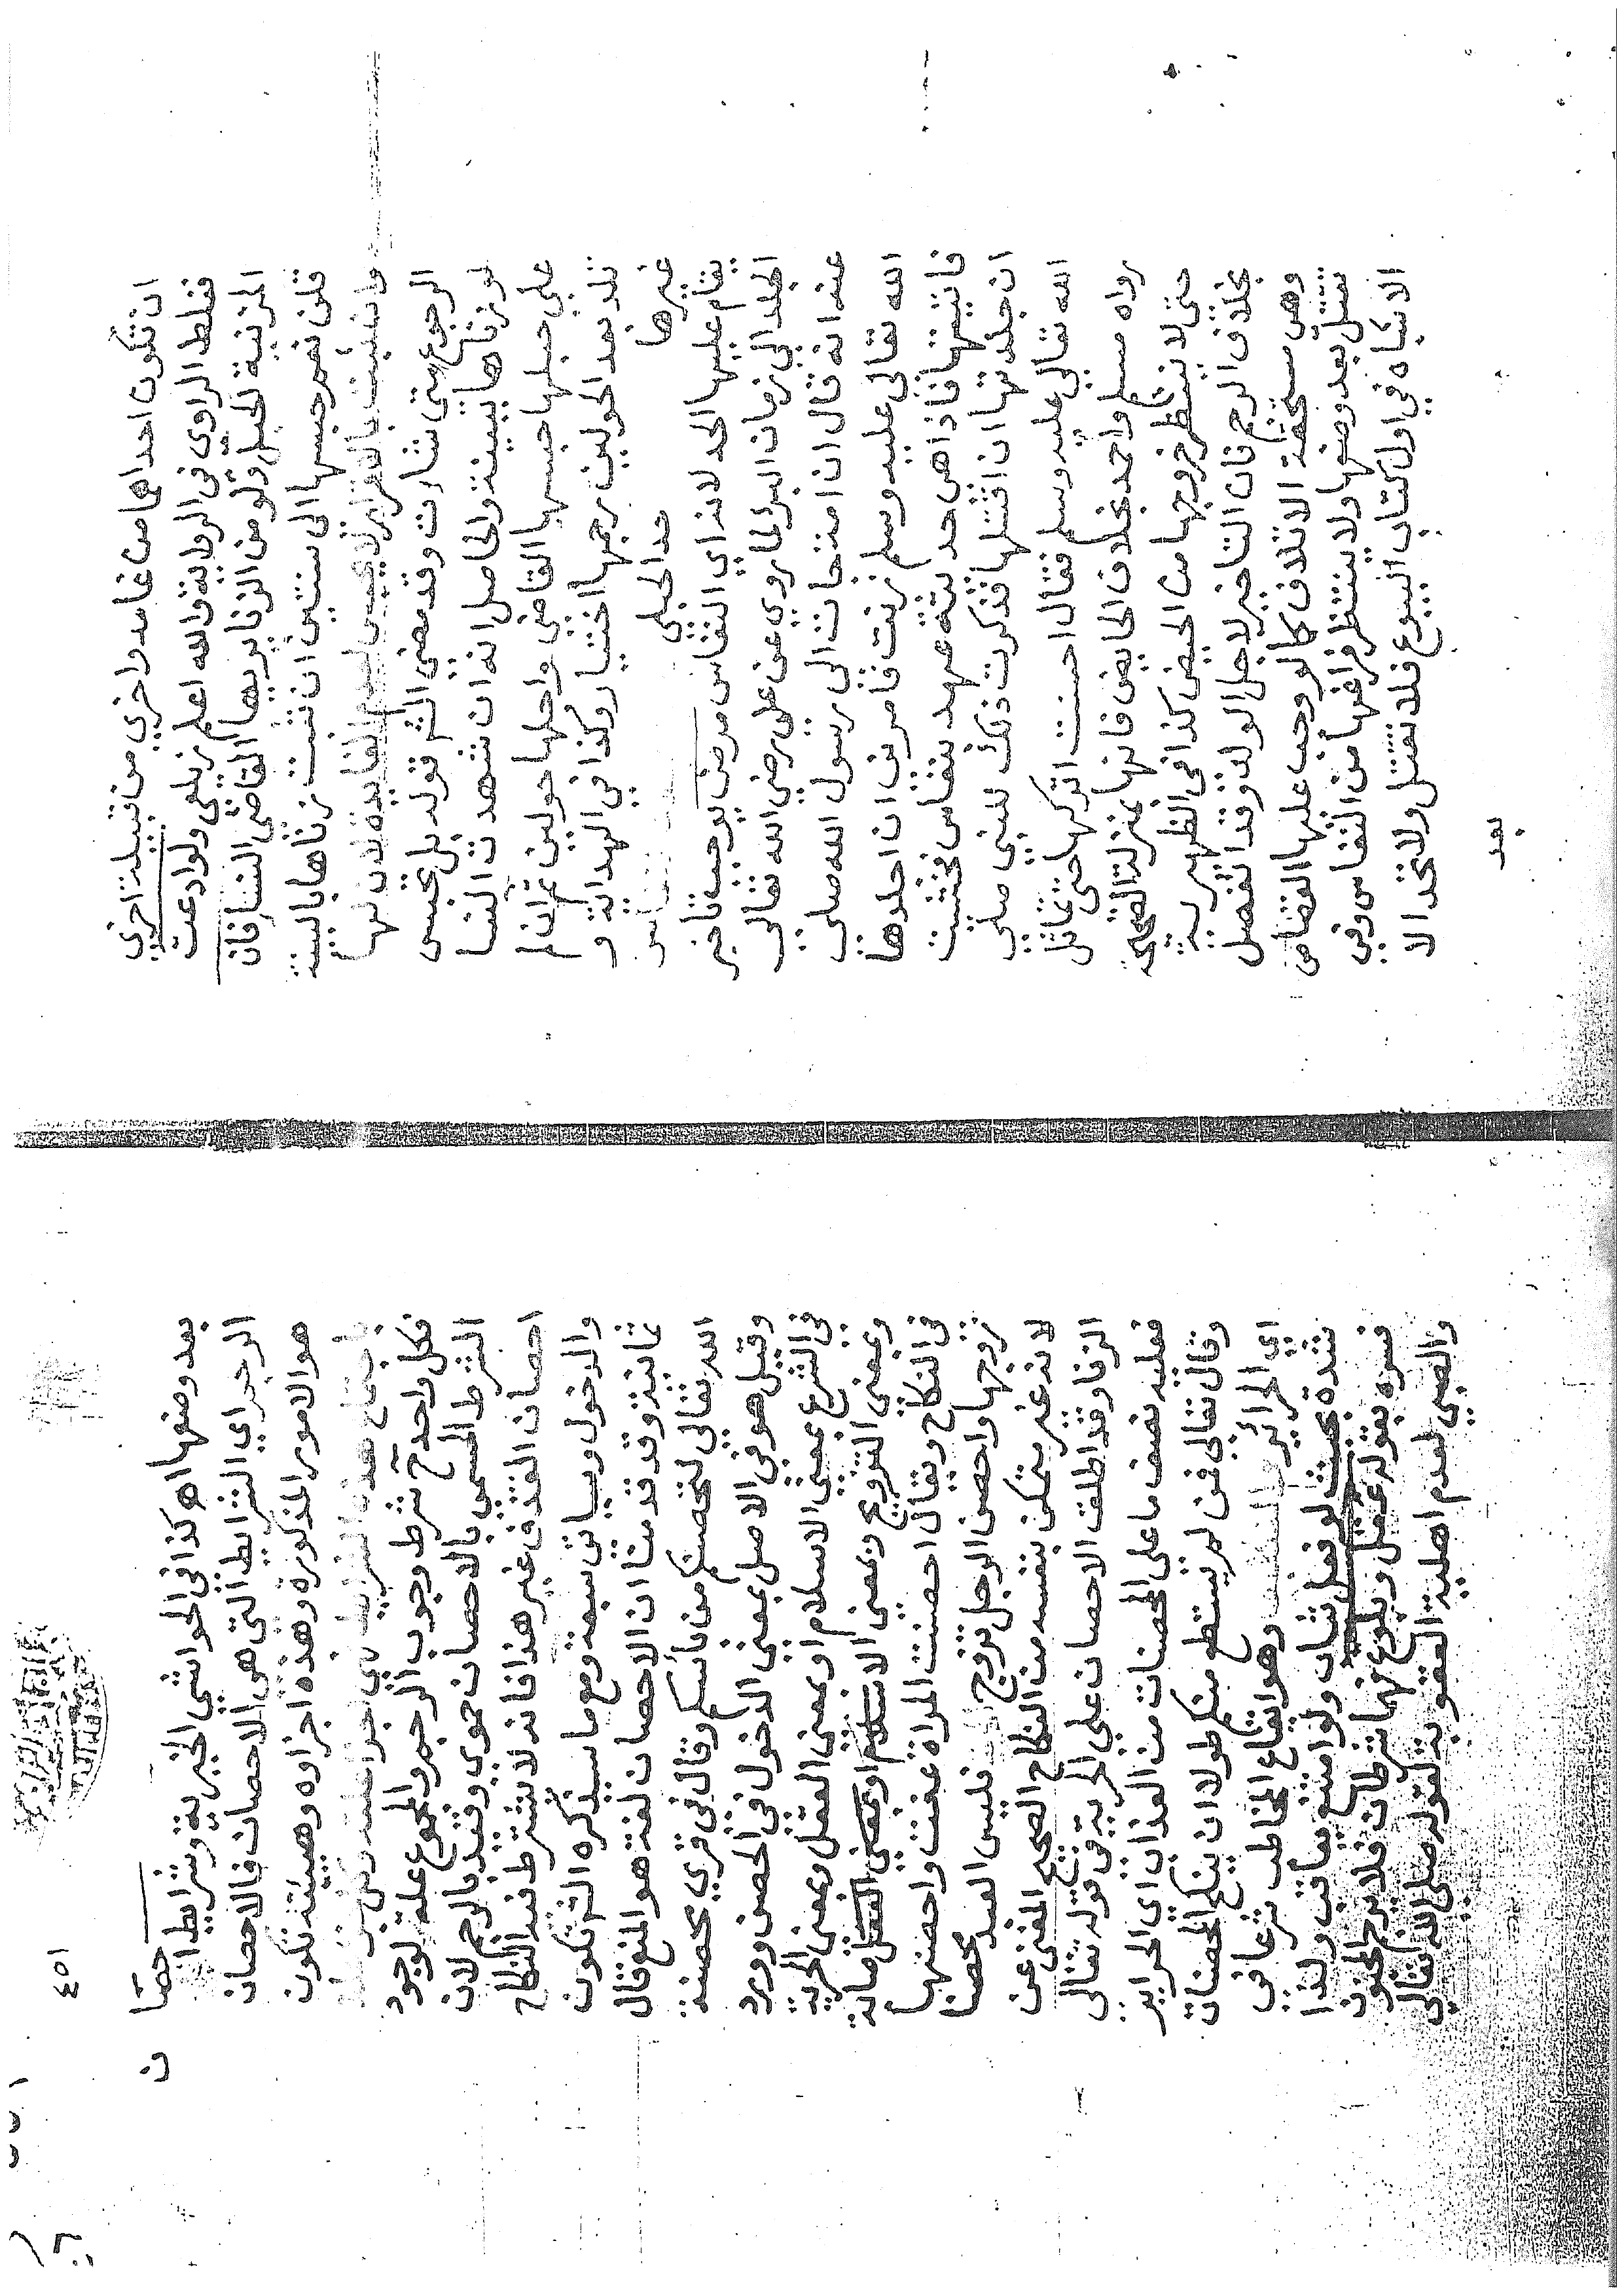 ان تكون احداهما من غامد واخري من قبيلة اخري
فغلط الراوي في الرواية والله اعلم زيلعي ولو ادعت
المزنية الحبل ولو من الزنا يريها القاضي النسا فان
قلن نعم حبسها الى سنتين ان ثبت زناها بالبينة
وان ثبت بالاقرار لا يحبس لعدم الفايدة لان لها
الرجوع متى شاءت وقد مضى قوله بل تحبس
لو زناها ببينة والحاصل انه ان شهدت النسا
على حبلها حبسها القاضي واجلها حولين ثم ان لم
تلد بعد الحولين رجمها اختيار وكذا في الهداية و
غيرها حد الحبلى
يقام عليها الحد لانه اي النفاس مرض يوجب تاخير
الجلد الى زمان البرء لما روي عن علي رضي الله تعالى
عنه انه قال ان امة الى رسول الله صلى
الله تعالى عليه وسلم زنت فامرني ان اجلدها
فاتيتها فاذا هي حديثة عهد بنفاس فخشيت
ان جلدتها ان اقتلها فذكرت ذلك للنبي صلى
الله تعالى عليه وسلم فقال احسنت اتركها حتى تماثل
رواه مسلم واحمد بخلاف الحايض فانها بمنزلة الصحيح
حتى لا ينتظر خروجها من الحيض كذا في الظهيرية
بخلاف الرجم فان التاخير لاجل الولد وقد انفصل
وهي مستحقة الاتلاف كما لو وجب عليها القصاص
تقتل بعد وضعها ولا ينتظر فراغها من النفاس وفي
الاشباه في اول كتاب البيوع فلا تقتل ولا تحد الا
بعد
٤٥١
بعد وضعها اه كذا في الحواشي الخيرية وشرايط احصان
الرجم اي الشرايط التي هي الاحصان فالاحصان
هو الامور المذكورة وهذه اجزاوه وهييته تكون
باجتماع هذه الشرايط
فكل واحد ح شرط وجوب الرجم والمجموع علة لوجود
الشرط المسمى بالاحصان حموي وقيد بالرجم لان
احصان القذف غير هذا فانه لا يشترط فيه النكاح
والدخول وسياتي سبعة ومع ما سيذكره الش تكون
ثمانية وقد قدمنا ان الاحصان لغة هو المنع قال
الله تعالى لتحصنكم من بأسكم وقال في قرى محصنة
وقيل هو في الاصل بمعنى الدخول في الحصن وورد
في الشرع بمعنى الاسلام او بمعنى العقل وبمعنى الحرية
وبمعنى التزويج وبمعنى الاصابة
في النكاح ويقال احصنت المراة عفت واحصنها
زوجها واحصن الرجل تزوج فليس العبد محصنا
لانه غير متمكن بنفسه من النكاح الصحيح المغني عن
الزنا وقد اطلق الاحصان على الحرية في قوله تعالى
فعليهن نصف ما على المحصنات من العذاب اي الحراير
وقال تعالى فمن لم يستطع منكم طولا ان ينكح المحصنات
اي الحراير وهو ايقاع المخاطب شرعا في
شدة بحيث لو فعل يثاب ولو امتنع يعاقب ولذا
فسره بقوله عقل وبلوغ فهما شرطان فلا يرجم المجنون
والصبي لعدم اهلية العقوبة لقوله صلى الله تعالى